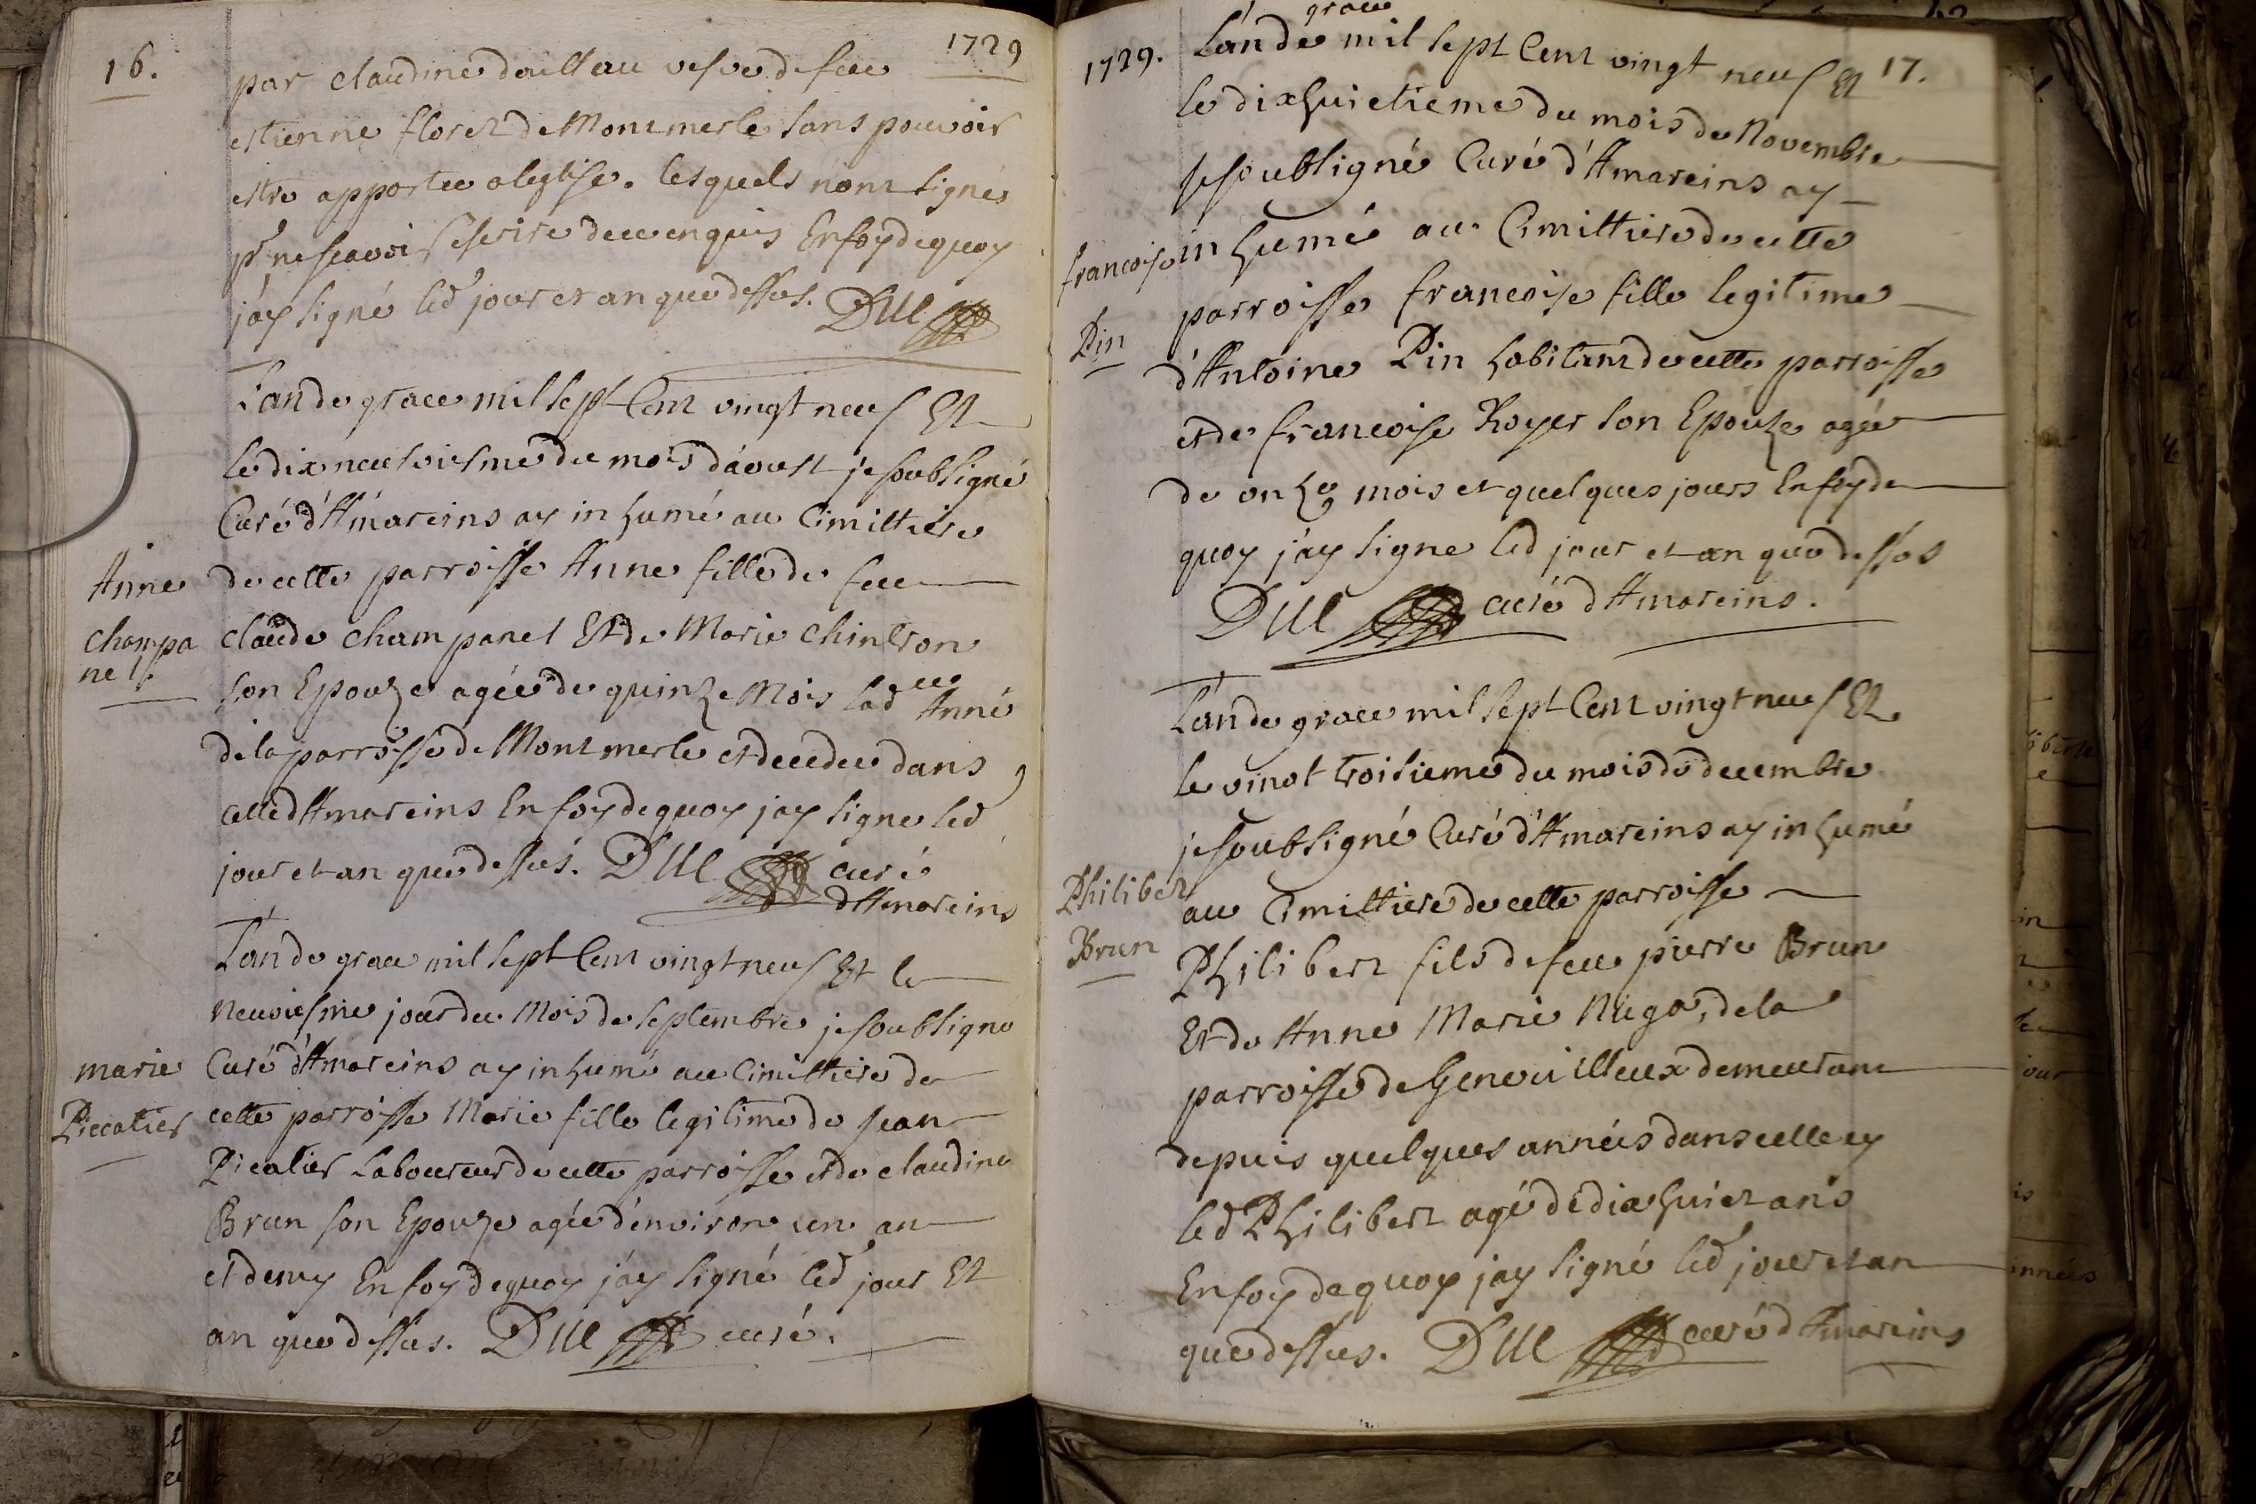 16.
1729
par claudine doilleau vesve de feu
estienne floret de Montmerle sans pouvoir
estre apportee a leglise. lesquels nont signés
pr ne scavoir escrire de ce enquis En foy de quoy
j'ay signé led jour et an que dessus. DUC
L'an de grace mil sept Cent vingt neuf Et
le dix neuvoiesme du mois d'aoust je soubsigné
Curé d'Amareins ay inhumé au Cimittiere
Anne
de cette parroisse Anne fille de feu
champa
nel.
claude champanel Et de Marie Chintron
son Epouze agée de quinze Mois lad Anne
de la parroisse de Montmerle et decedee dans
celle d'Amareins En foy de quoy jay signe led
jour et an que dessus. DUC curé
d'Amareins
L'an de grace mil sept Cent vingt neuf Et le
neuviesme jour du Mois de septembre je soubsigné
marie
Curé d'Amareins ay inhumé au Cimittiere de
Piccatier
cette parroisse Marie fille legitime de Jean
Picatier Laboureur de cette parroisse et de claudine
Brun son Epouze agée d'environ un an
et demy En foy de quoy j'ay signé led jour Et
an que dessus. DUC curé.
1729.
17.
grace
L'an de mil sept Cent vingt neuf Et
le dixhuietieme du mois de Novembre
je soubsigné Curé d'Amareins ay
francoise
inhumé au Cimittiere de cette
parroisse francoise fille legitime
Pin
d'Antoine Pin habitant de cette parroisse
et de francoise Royer son Epouze agée
de onze mois et quelques jours En foy de
quoy j'ay signe led jour et an que dessos
DUC curé d'Amareins.
L'an de grace mil sept Cent vingt neuf Et
le vingt troisieme du mois de decembre
je soubsigné Curé d'Amareins ay inhumé
Philibert
au Cimittiere de cette parroisse
Brun
Philibert fils de feu pierre Brun
Et de Anne Marie de la
parroisse de Genouilleux demeurant
depuis quelques années dans celle cy
led Philibert agé de dix huiet ans
En foy de quoy jay signé led jour et an
que dessus. DUC curé d'Amareins